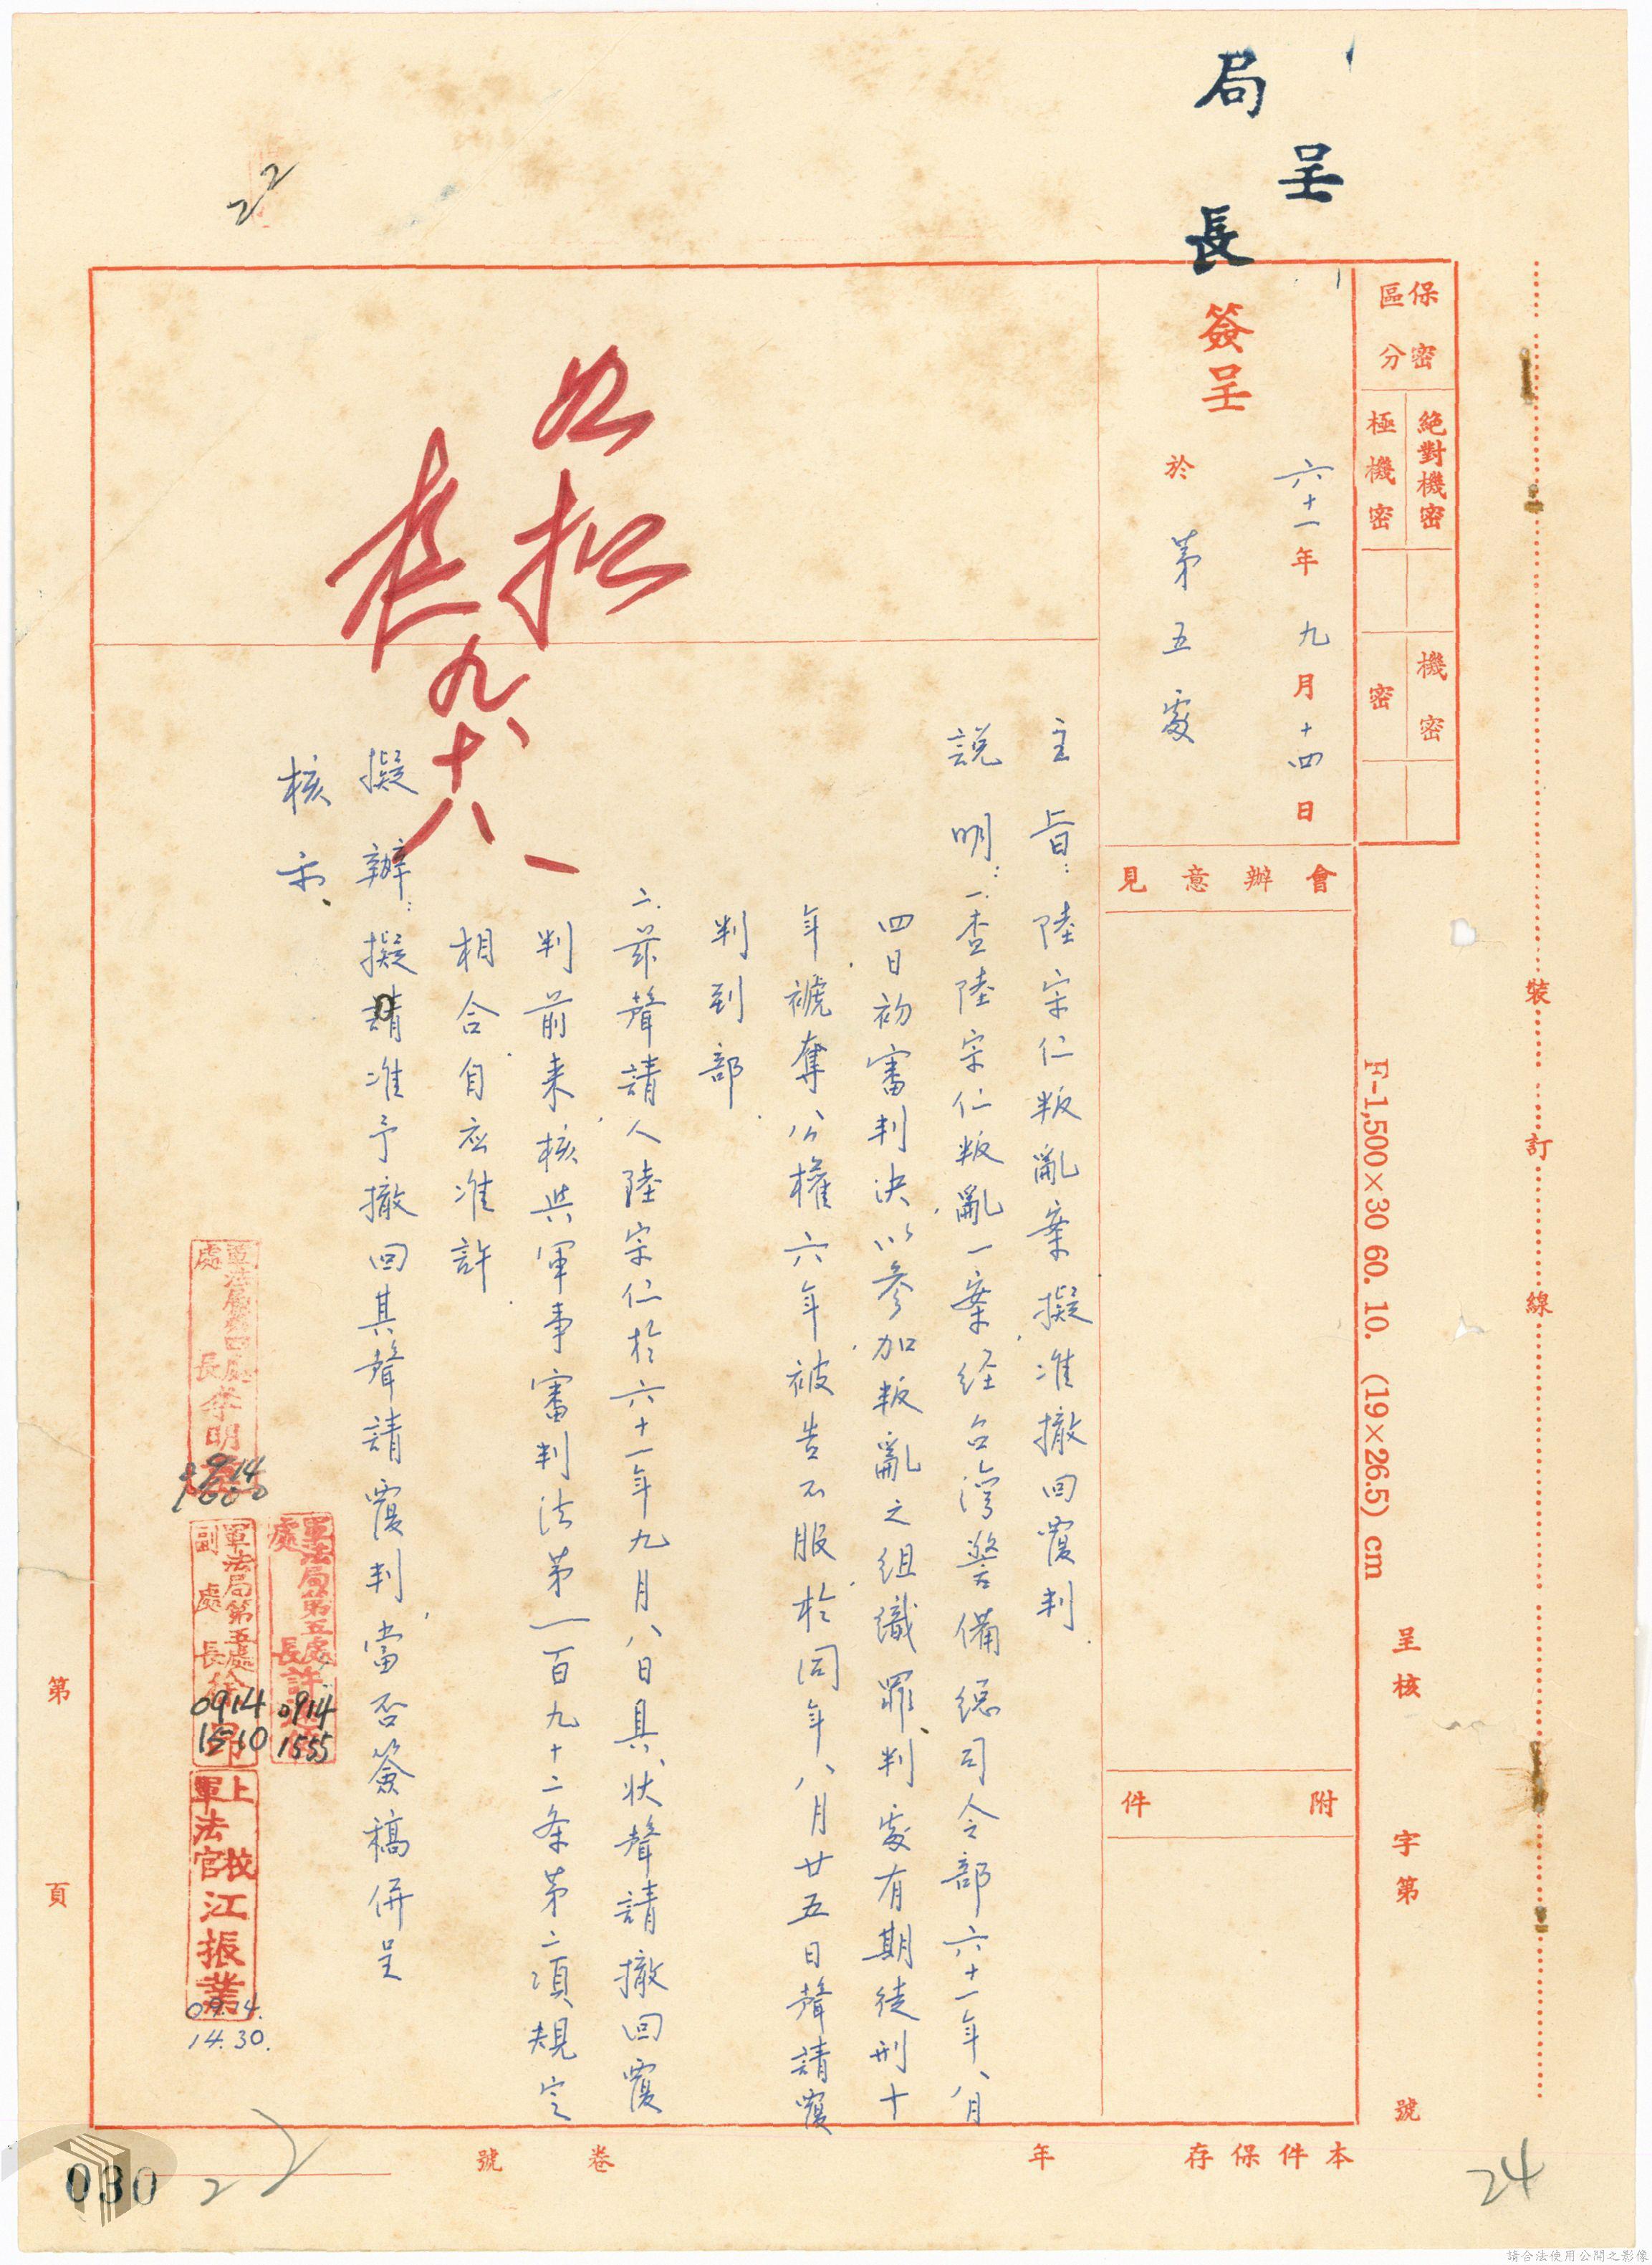 呈
局長
保密區分
絕對機密
極機密
機密
密
簽呈
六十一年九月十四日
於第五處
會辦意見
附件
裝訂線
F-1,500×30 60. 10. (19×26.5) cm
呈核 字第 號
如擬
九、十八、
主旨：陸宗仁叛亂案、擬准撤回覆判.
說明：一.查陸宗仁叛亂一案経台灣警備總司令部六十一年八月
四日初審判決以參加叛亂之組織罪、判處有期徒刑十
年褫奪公權六年被告不服於同年八月廿五日聲請覆
判到部.
二.茲聲請人陸宗仁於六十一年九月八日具狀聲請撤回覆
判前來、核與軍事審判法第一百九十二条第二項規定
相合自应准許.
擬辦：擬請准予撤回其聲請覆判、當否簽稿併呈
核示、
軍法局第五處處長許
0914
1555
軍法局第四處處長李明
0914
1600
軍法局第五處副處長徐
0914
1510
上校軍法官江振業
09.14.
14.30.
第 頁
本件保存 年
卷 號
22
22
24
030
請合法使用公開之影像